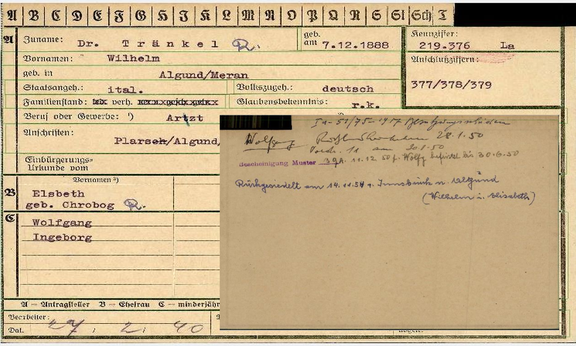 A B C D E F G H I K L M N O P Q R S St Sch T
A Zuname: Dr. Tränkel R. geb. am 7.12.1888 Kennziffer: 219.376 La
Vornamen: Wilhelm Anschlußziffern:
geb. in Algund/Meran 377/378/379
Staatsangeh.: ital. Volkszugeh.: deutsch
Familienstand: verh. Glaubensbekenntnis: r.k.
Beruf oder Gewerbe: ¹) Artzt
Anschriften:
Plarsch/Algund,
Einbürgerungs-
Urkunde vom
Vornamen ²)
B Elsbeth
geb. Chrobog R.
C Wolfgang
Ingeborg
A — Antragsteller B — Ehefrau C — minderjähr
Bearbeiter:
Dat. 27. 2. 40
Wolfgang 28.1.50
11 am 30.1.50
Bescheinigung Muster 39A 11.12.50 f. Wolfg. bis 30.6.50
Rückgesiedelt am 19.11.54 v. Innsbruck n. Algund
(Wilhelm u. Elisabeth)